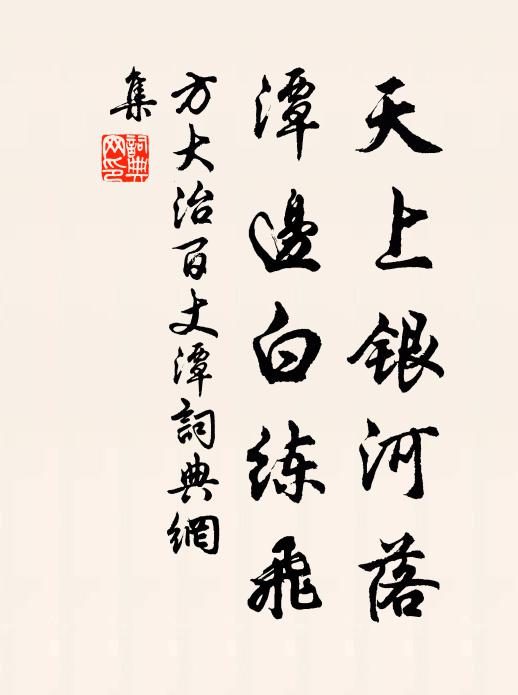 天上銀河落
潭邊白练飛
方大治百丈潭詞典網
集
詞典
网印